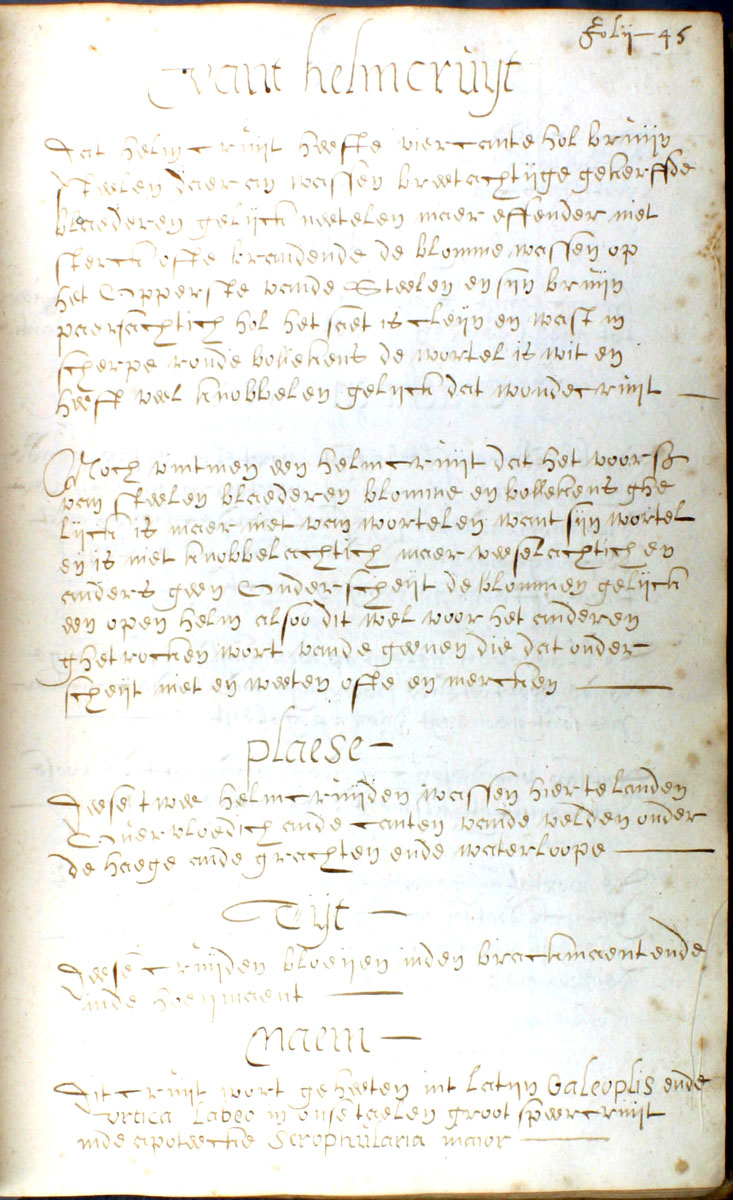 Folij 45
Vant helmcruyt
dat helmcruijt heefte viercante hol bruijn
steelen daer an wassen breetachtijge gekerffde
blaederen gelijck neetelen maer effender niet
sterck ofte brandende de blomme wassen op
het Opperste vande Steelen en sijn bruijn
paersachtich hol het saet is cleijn en wast in
scherpe ronde bollekens de wortel is wit en
heeft veel knobbelen gelijck dat wondecruijt
Noch vintmen een helmcruijt dat het voors
van steelen blaederen blomme en bollekens ghe
lijck is maer niet van wortelen want sijn wortel
en is niet knobbelachtich maer veeselachtich en
anders geen Onderscheijt de blommen gelijck
een open helm alsoo dit wel voor het anderen
ghetrocken wort vande geenen die dat onder
scheijt niet en weeten ofte en mercken
plaese
deese twee helmcruijden wassen hier te landen
Overvloedich ande canten vande velden onder
de haege ande grachten ende waterloope
Tijt
deese cruijden bloeijen inden brackmaent ende
inde hoeijmaent
Naem
dit cruijt wort geheeten int latijn Galeoplis ende
urtica Labeo in onse taelen groot speercruijt
inde apoteecke Scrophularia maior